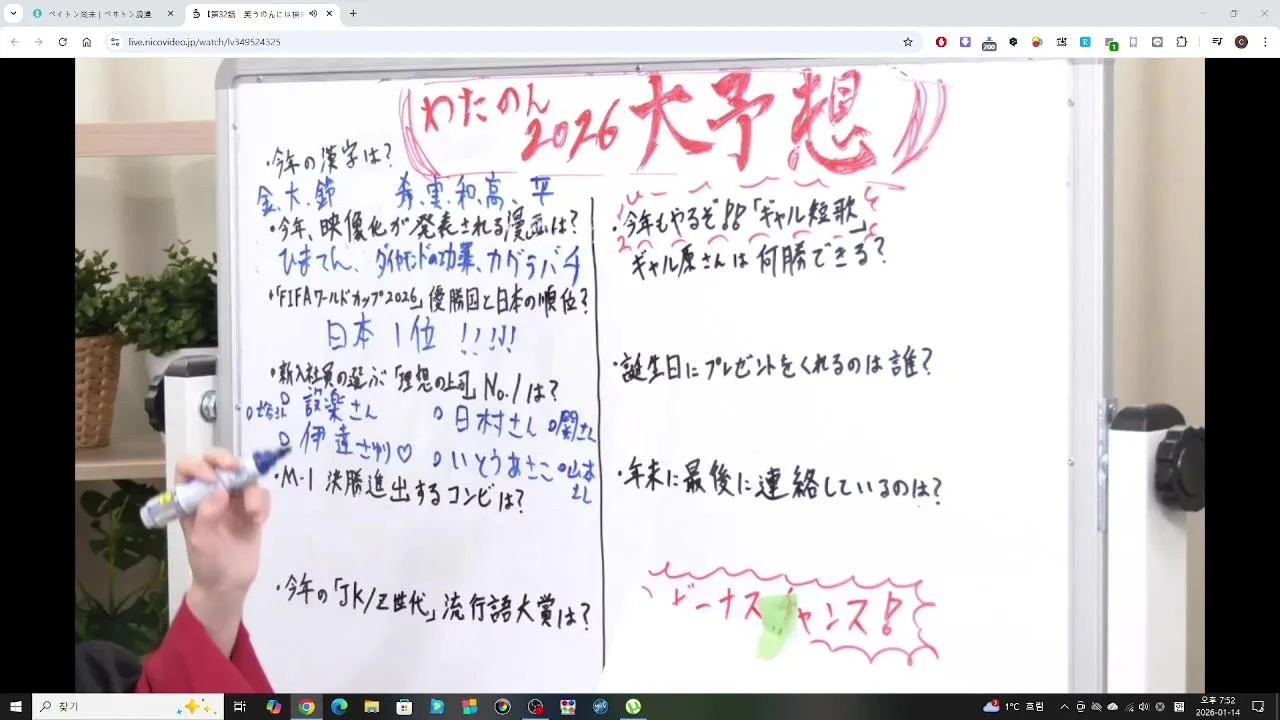 live.nicovideo.jp/watch/lv349524325
わたのん
2026大予想
・今年の漢字は?
金、大、節 秀、実、和、高、平
・今年、映像化が発表される漫画は?
ひまてん、ダイヤモンドの功罪、カグラバチ
・「FIFAワールドカップ2026」優勝国と日本の順位?
日本1位!!!!!
・新入社員の選ぶ「理想の上司」No.1は?
設楽さん
日村さん
関さん
伊達さゆり♡
いとうあさこ
山本
・M-1 決勝進出するコンビは?
・今年の「JK/Z世代」流行語大賞は?
・今年もやるぞ!!「ギャル短歌」
ギャル原さんは何勝できる?
・誕生日にプレゼントをくれるのは誰?
・年末に最後に連絡しているのは?
ボーナスチャンス!
찾기
1°C 흐림
오후 7:52
2026-01-14